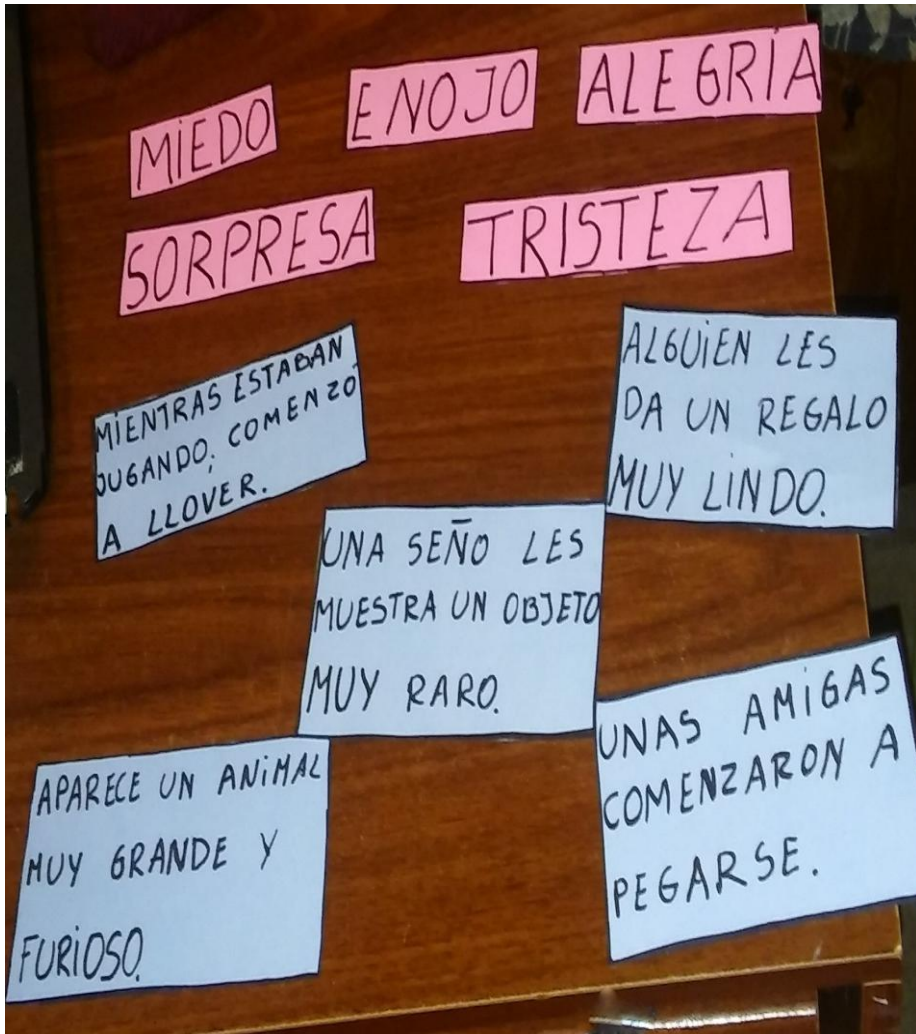 MIEDO
ENOJO
ALEGRÍA
SORPRESA
TRISTEZA
MIENTRAS ESTABAN
JUGANDO, COMENZÓ
A LLOVER.
ALGUIEN LES
DA UN REGALO
MUY LINDO.
UNA SEÑO LES
MUESTRA UN OBJETO
MUY RARO.
APARECE UN ANIMAL
MUY GRANDE Y
FURIOSO.
UNAS AMIGAS
COMENZARON A
PEGARSE.